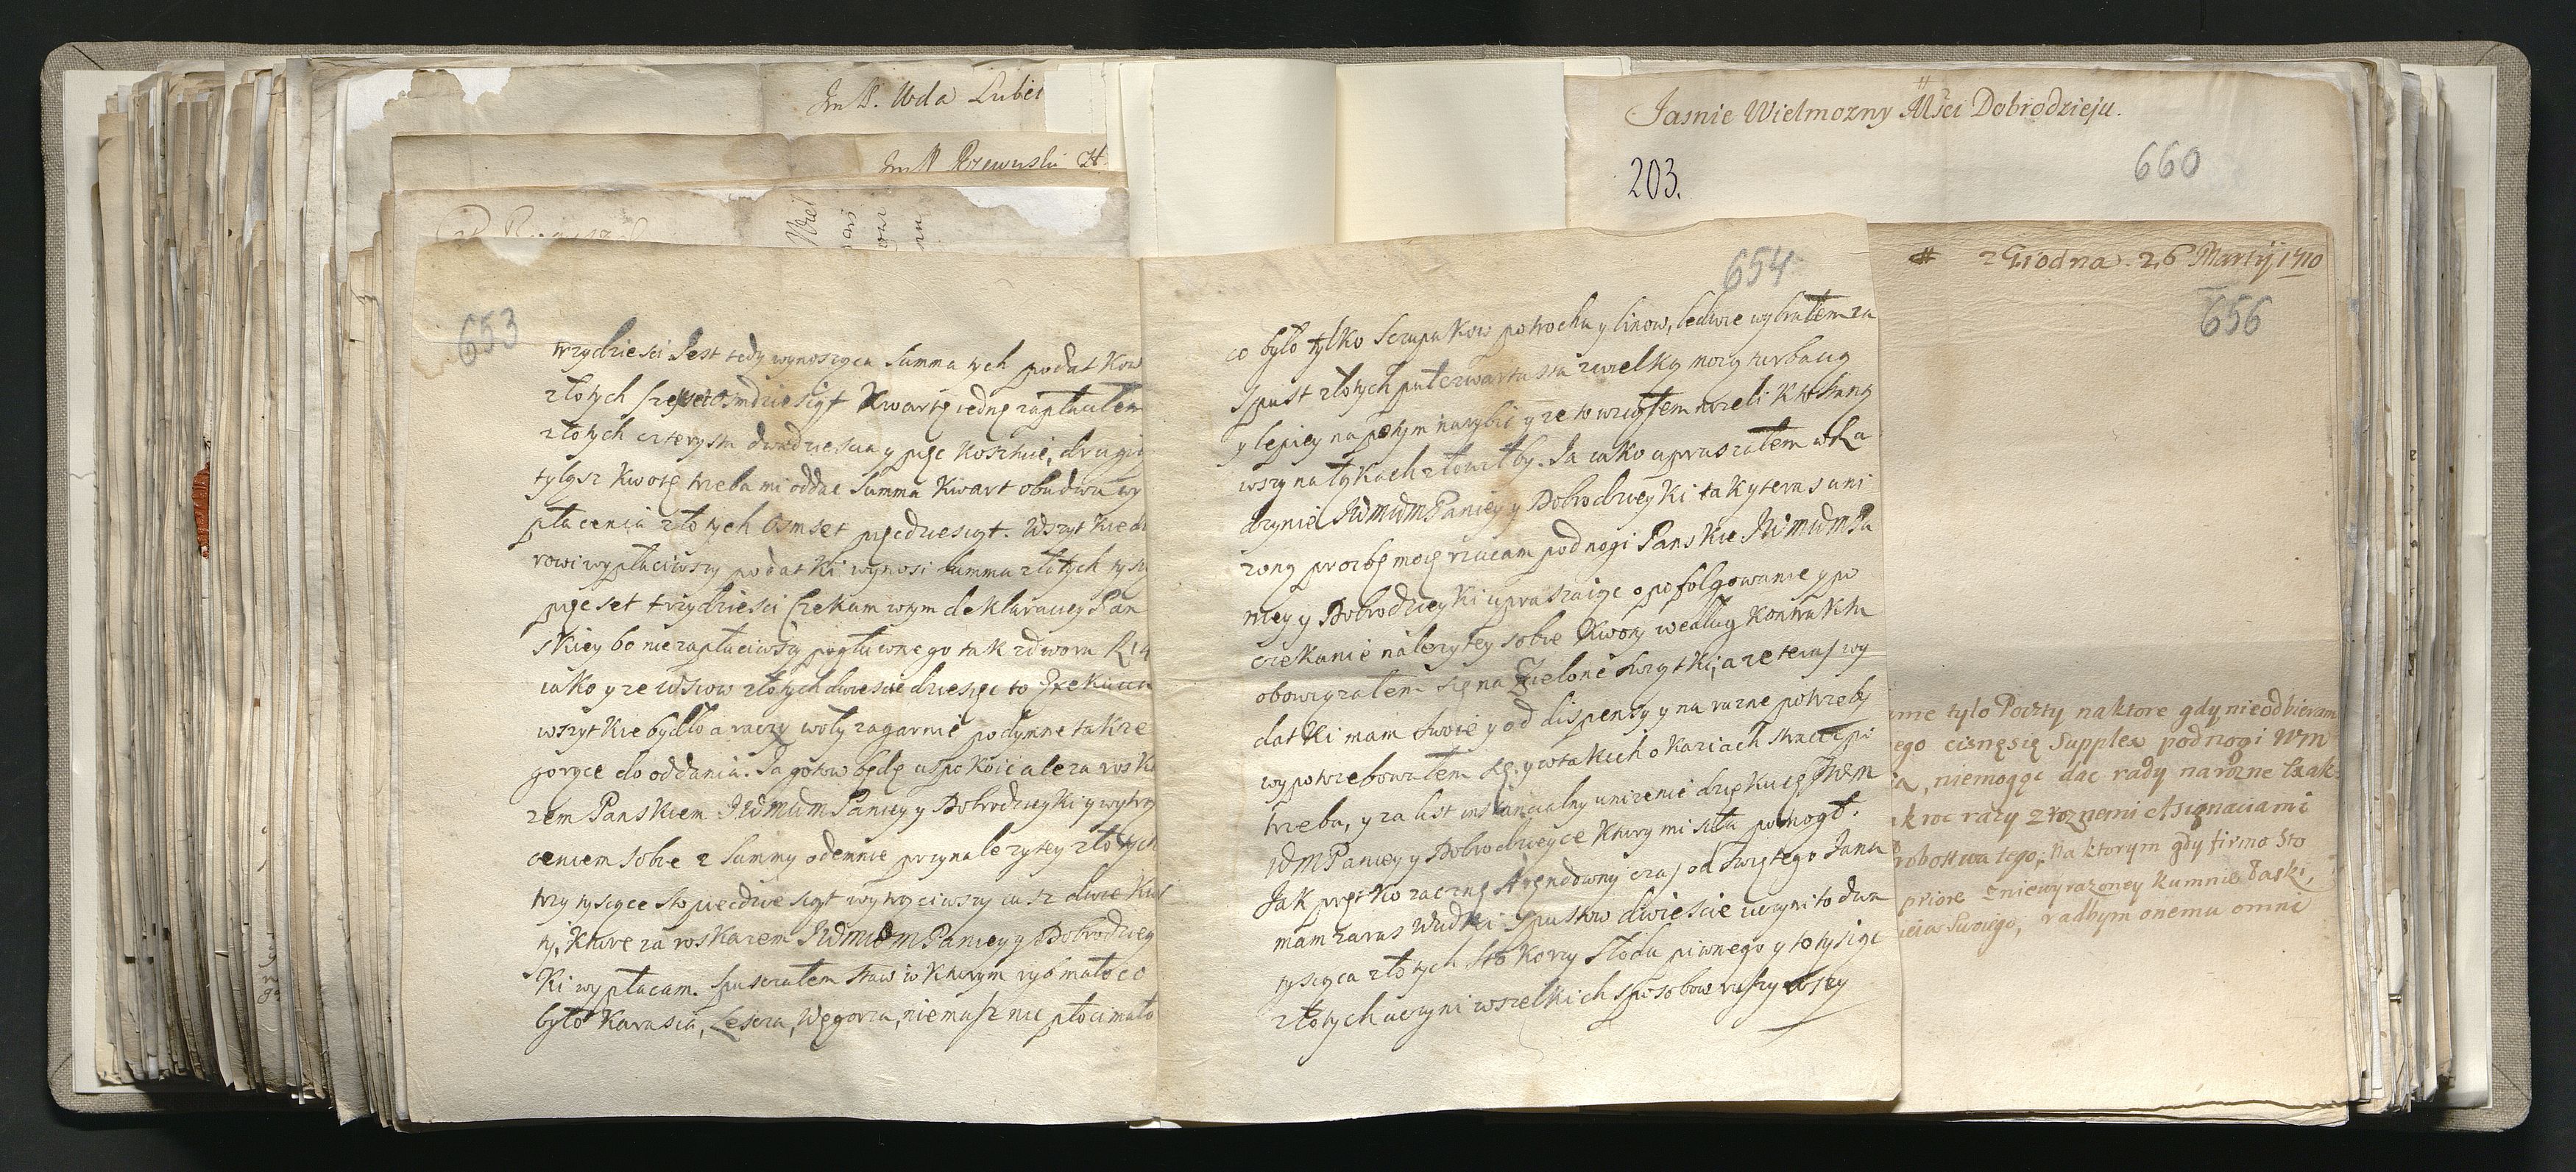 Jm P. Wda Lubel
Jm P Rzewuski H
653
trzydzieści Jest tedy wynosząca Summa tych podatkow
złotych sześćset Osmdziesiąt Kwartę iednę zapłaciłem
złotych czterysta dwadziescia y pięc Kosztuie, drugą
tyląsz Kwotę trzeba mi oddac Summa Kwart obudwu wy
płacenia złotych Osmset pięcdziesiąt. Wszytkie d
rowi wypłaciwszy podatki wynosi summa złotych tysią
pięcset trzydzieści Czekam wtym deklaracyey Pan
skiey bo niezapłaciwszy pogłownego tak zdworu
iako y ze Wsiow złotych dwieście dziesięc to Exekucia
wszytkie bydło a raczy woły zagarnie podymne takze
gorące do oddania. Ja gotow będę uspokoic ale za roska
zem Panskiem JWMWM Paniey y Dobrodzieyki y wytrą
ceniem sobie z Summy odemnie przynalezytey złotych
trzy tysiące sto pięcdziesiąt wytrąciwszy iusz dwie Kwar
ty, Kture za roskazem JWMWM Paniey y Dobrodziey
Ki wypłacam. Spusczałem staw w Kturym ryb mało co
było Karasia, Lescza, Węgorza, niemasz nic płoci mało
654
co było tylko Sczupakow potrochu y linow, ledwie wybrałem za
Spust złotych pułczwartasta zwielką moią turbacią
y lepiey na potym narybię y ze to wziąłem nizeli K
wszy na tykach złowił by. Ja iako upraszałem w Ła
dzynie JWMWM Paniey y Dobrodzieyki tak y teraz uni
zoną prozbę moię rzucam pod nogi Panskie JWMWM Pa
niey y Dobrodzieyki upraszaiąc o pofolgowanie y po
czekanie nalezytey sobie Kwoty według Kontraktu
obowiązałem się na Zielone Swiątki, a ze teraz wy
datki mam swoie y od dispensy y na rozne potrzeby
wypotrzebowałem się y w takich okaziach stracic mi
trzeba, y za list instancialny unizenie dziękuię JWM
WM Paniey y Dobrodzieyce Ktury mi siła pomogł.
Jak prętko zacznę Arendowny czas od Swiętego Jana
mam zaraz Wudki Spustow dwieście uczyni to dwa
tysiąca złotych sto Korcy słodu piwnego y to tysiąc
złotych uczyni wszelkich sposobow ruszywszy
Jasnie Wielmozny Mści Dobrodzieju.
203.
660
# z Grodna. 26 Martij 1710
656
tylo Poczty naktore gdy nieodbieram
ego cisnęsię Supplex podnogi WM
niemogąc dac rady narozne
kroc razy zroznemi Asignaciami
tego, Na ktorym gdy firmo Sto
priore zniewyrazoney kumnie Łaski,
Swoiego, radbym onemu omni